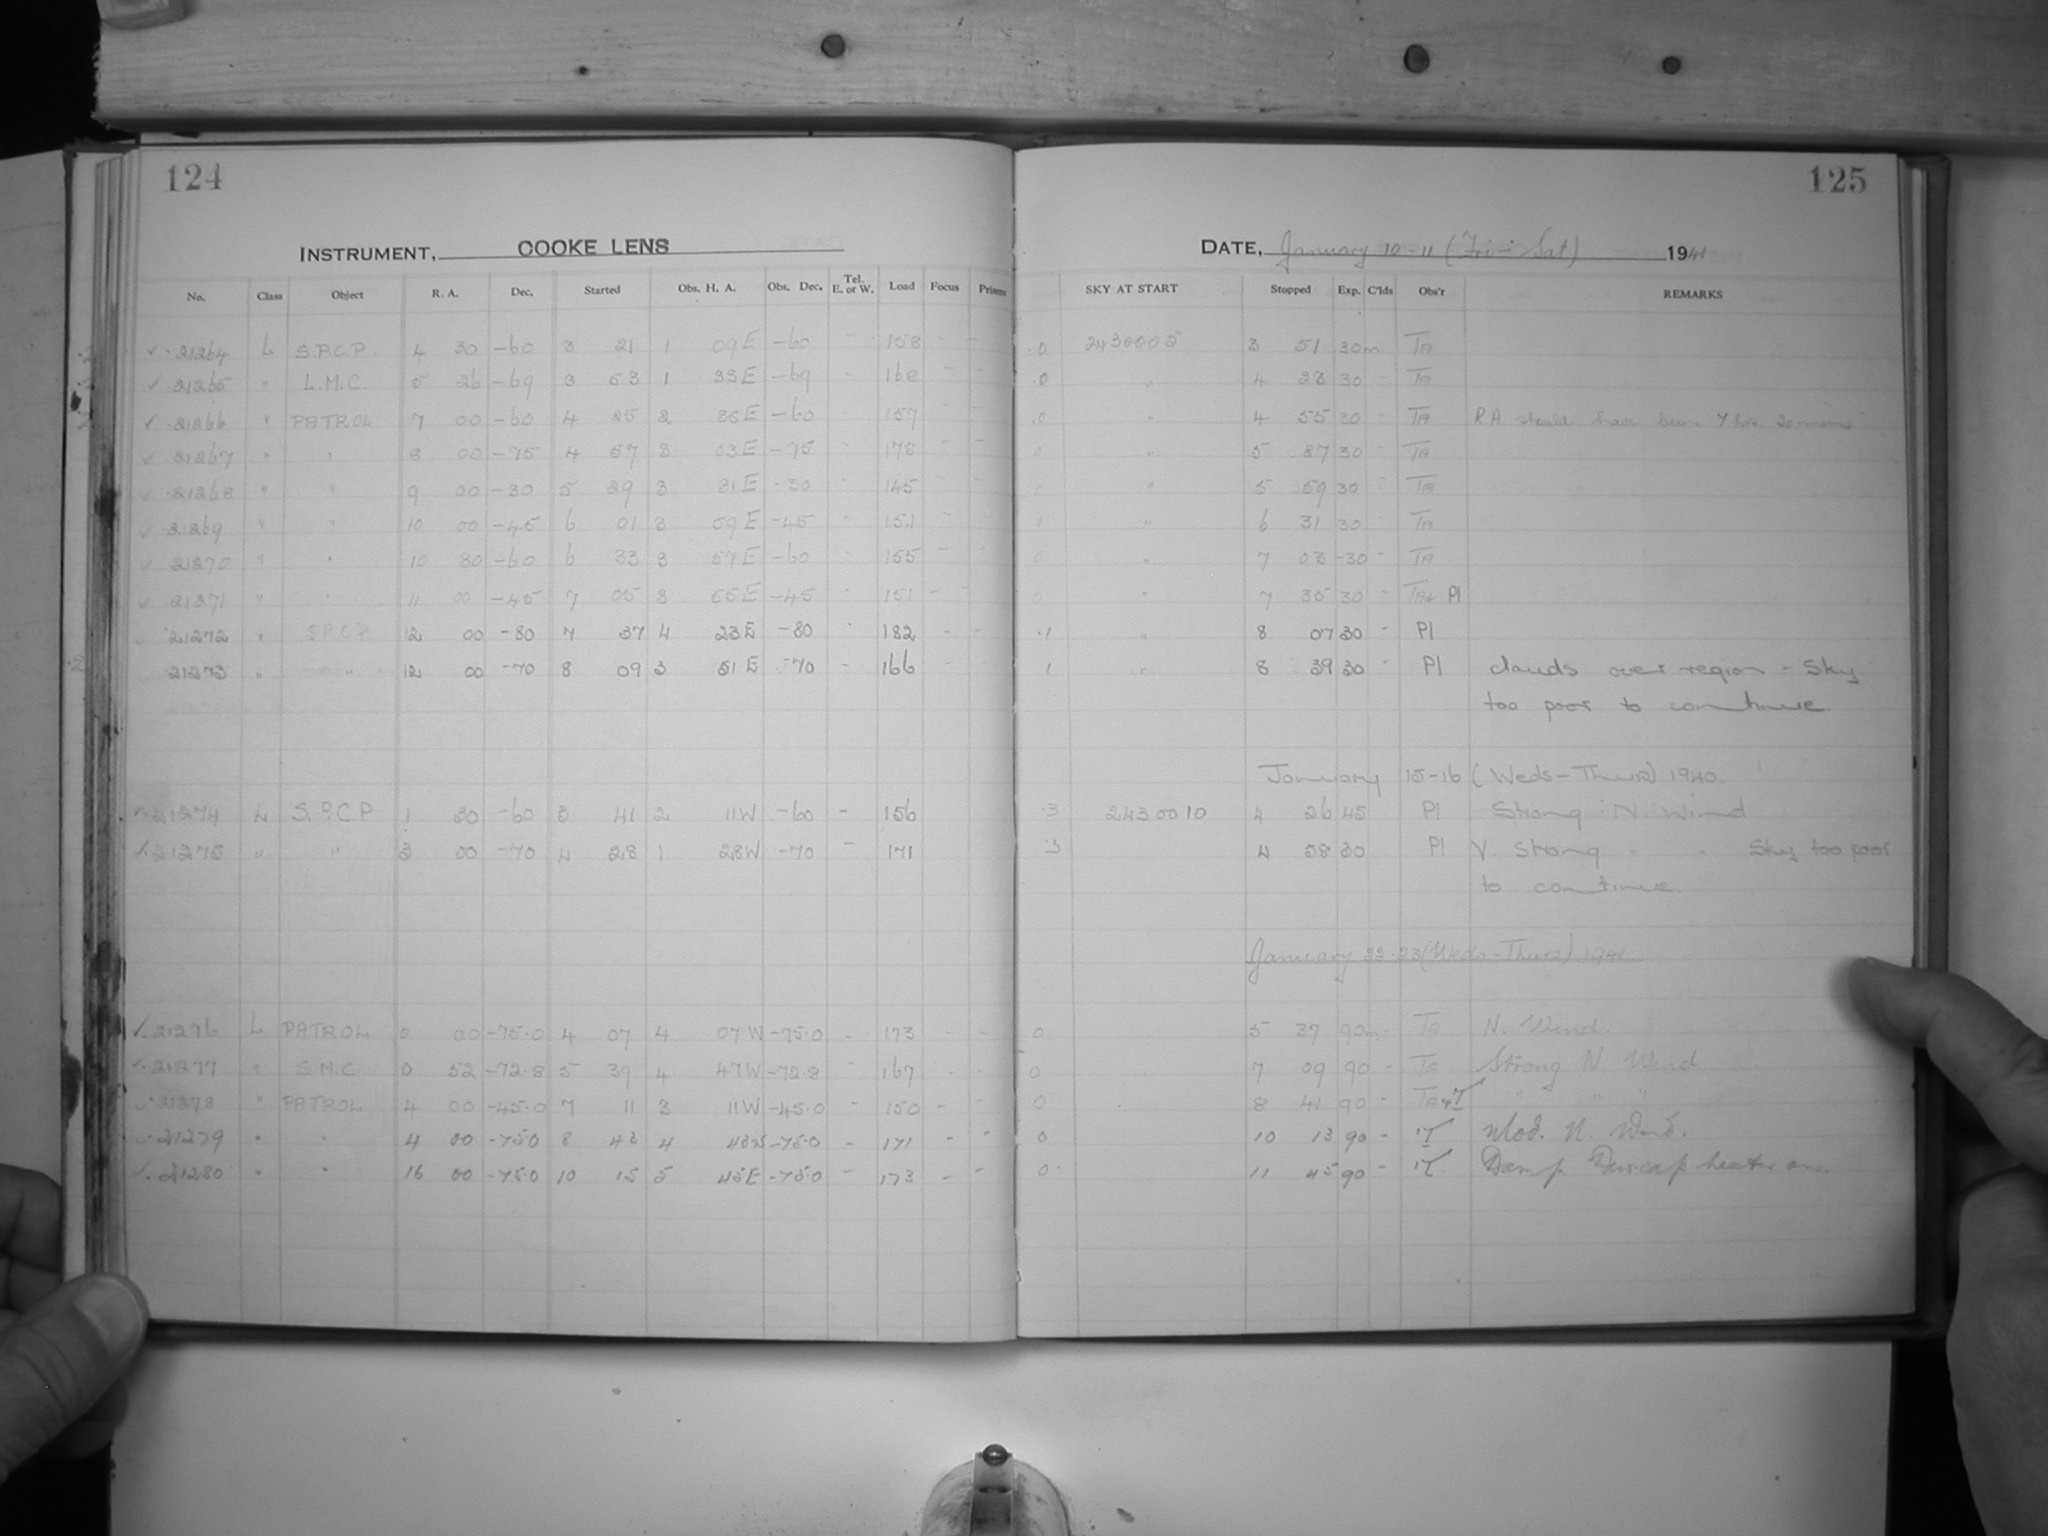 124
125
INSTRUMENT, COOKE LENS
DATE, January 10-11 (Fri - Sat) 1941
No. Class Object R. A. Dec. Started Obs. H. A. Obs. Dec. Tel. E. or W. Load Focus Prisms SKY AT START Stopped Exp. C'lds Obs'r REMARKS
✓ 21264 L S.P.C.P. 4 30 -60 3 21 1 09E -60 - 158 - - 0 2430005 3 51 30m TA
✓ 21265 " L.M.C. 5 26 -69 3 53 1 33E -69 - 168 - - 0 " 4 23 30 TA
✓ 21266 " PATROL 7 00 -60 4 25 2 36E -60 - 157 - - 0 " 4 55 30 - TA RA should have been 7hrs 30mins
✓ 21267 " " 8 00 -75 4 57 3 03E -75 - 178 - - 0 " 5 27 30 - TA
✓ 21268 " " 9 00 -30 5 29 3 31E -30 - 145 - - 0 " 5 59 30 - TA
✓ 21269 " " 10 00 -45 6 01 3 59E -45 - 151 - - 0 " 6 31 30 - TA
✓ 21270 " " 10 30 -60 6 33 3 57E -60 - 155 - - 0 " 7 03 30 - TA
✓ 21271 " " 11 00 -45 7 05 3 55E -45 - 151 - - 0 " 7 35 30 - TA& Pl
21272 " S.P.C.P. 12 00 -80 7 37 4 23E -80 - 182 - - .1 " 8 07 30 - Pl
21273 " " " 12 00 -70 8 09 3 51E -70 - 166 - - 1 " 8 39 30 - Pl clouds over region - Sky
too poor to continue.
January 15-16 (Weds-Thurs) 1940.
✓ 21274 L S.P.C.P 1 30 -60 3 41 2 11W -60 - 156 .3 2430010 4 26 45 Pl Strong N. Wind
✓ 21275 " " 3 00 -70 4 28 1 28W -70 - 171 .3 4 58 30 Pl V. Strong " " Sky too poor
to continue
January 22-23 (Weds-Thurs) 1941
✓ 21276 L PATROL 0 00 -75.0 4 07 4 07W -75.0 - 173 - - 0 5 37 90m - TA N. Wind.
✓ 21277 " S.M.C. 0 52 -72.8 5 39 4 47W -72.8 - 167 - - 0 7 09 90 - TA Strong N Wind
✓ 21278 " PATROL 4 00 -45.0 7 11 3 11W -45.0 - 150 - - 0 8 41 90 - TA&T " " "
✓ 21279 " " 4 00 -75.0 8 43 4 43W -75.0 - 171 - - 0 10 13 90 - T Mod. N. Wind.
✓ 21280 " " 16 00 -75.0 10 15 5 45E -75.0 - 173 - - 0 11 45 90 - T Damp Dewcap heater on.